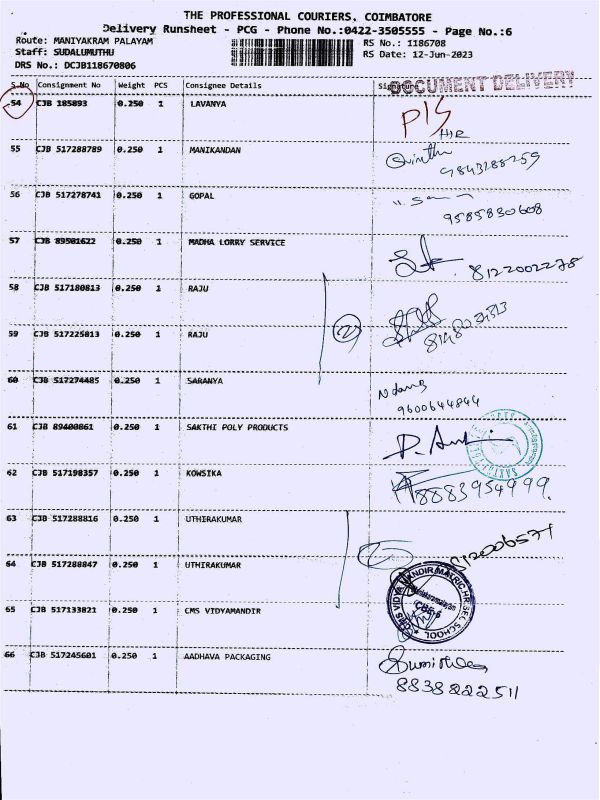 THE PROFESSIONAL COURIERS, COIMBATORE
Delivery Runsheet - PCG - Phone No.:0422-3505555 - Page No.:6
Route: MANIYAKRAM PALAYAM RS No.: 1186708
Staff: SUDALUMUTHU RS Date: 12-Jun-2023
DRS No.: DCJB118670806
DOCUMENT DELIVERY
S.No Consignment No Weight PCS Consignee Details Signature
54 CJB 185893 0.250 1 LAVANYA P/S
H/R
55 CJB 517288789 0.250 1 MANIKANDAN
9843288259
56 CJB 517278741 0.250 1 GOPAL
9585830608
57 CJB 89501622 0.250 1 MADHA LORRY SERVICE
8122002278
58 CJB 517180813 0.250 1 RAJU
2
59 CJB 517225813 0.250 1 RAJU
60 CJB 517274485 0.250 1 SARANYA
9600644844
61 CJB 89400861 0.250 1 SAKTHI POLY PRODUCTS
62 CJB 517198357 0.250 1 KOWSIKA
8883954999
63 CJB 517288816 0.250 1 UTHIRAKUMAR
64 CJB 517288847 0.250 1 UTHIRAKUMAR
65 CJB 517133821 0.250 1 CMS VIDYAMANDIR
CMS VIDYA MANDIR MATRIC HR. SEC SCHOOL
CBE-6
66 CJB 517245601 0.250 1 AADHAVA PACKAGING
8838822511